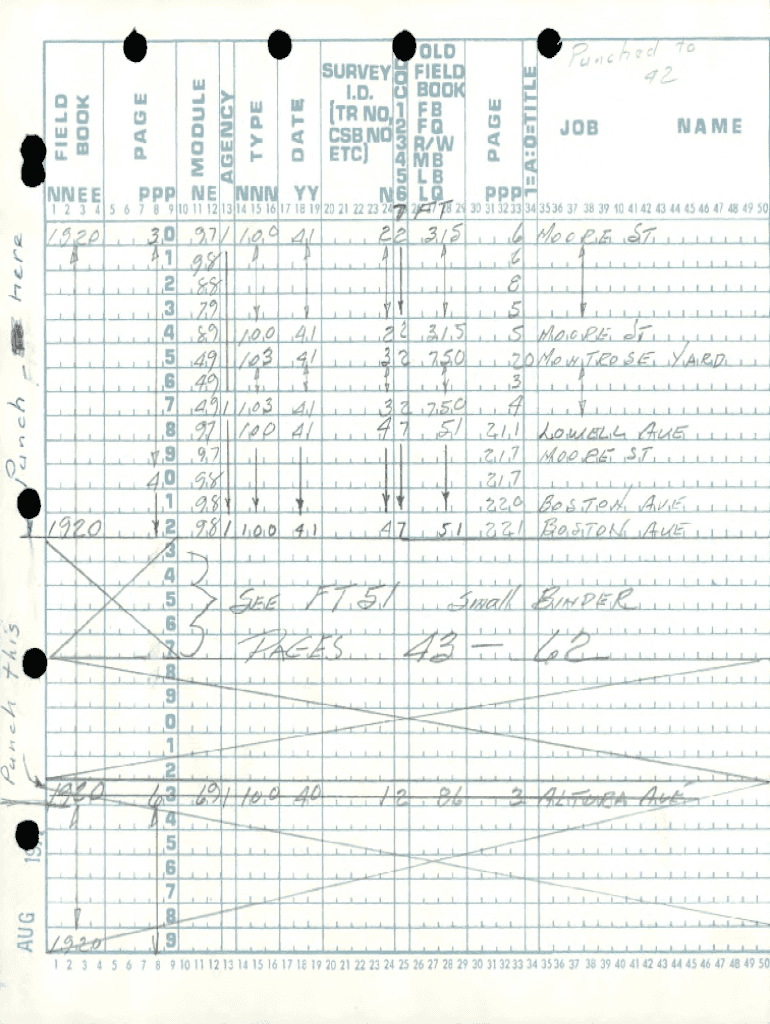 Punched to
42
FIELD BOOK
NNEE
PAGE
PPP
MODULE
NE
AGENCY
TYPE
NNN
DATE
YY
SURVEY
I.D.
(TR NO,
CSB NO
ETC)
N
COD
1
2
3
4
5
6
7
OLD
FIELD
BOOK
FB
FQ
R/W
MB
LB
LQ
FT
PAGE
PPP
1=A:0=TITLE
JOB NAME
1 2 3 4 5 6 7 8 9 10 11 12 13 14 15 16 17 18 19 20 21 22 23 24 28 29 30 31 32 33 34 35 36 37 38 39 40 41 42 43 44 45 46 47 48 49 50
1920 30 97 1 100 41 22 315 6 MOORE ST
1 98 6
2 88 8
3 79 5
4 89 100 41 22 315 5 MOORE ST
5 49 103 41 32 750 20 MONTROSE YARD
6 49 3
7 49 1 103 41 32 750 4
8 97 100 41 47 51 211 LOWELL AVE
9 97 217 MOORE ST
40 98 217
1 98 220 BOSTON AVE
1920 2 98 1 100 41 47 51 221 BOSTON AVE
3
4
5 SEE FT 51 Small BINDER
6
7 PAGES 43 - 62
8
9
0
1
2
1920 63 69 1 100 40 12 86 3 ALTURA AVE
4
5
6
7
8
1920 9
1 2 3 4 5 6 7 8 9 10 11 12 13 14 15 16 17 18 19 20 21 22 23 24 25 26 27 28 29 30 31 32 33 34 35 36 37 38 39 40 41 42 43 44 45 46 47 48 49 50
Punch Here
Punch this
AUG